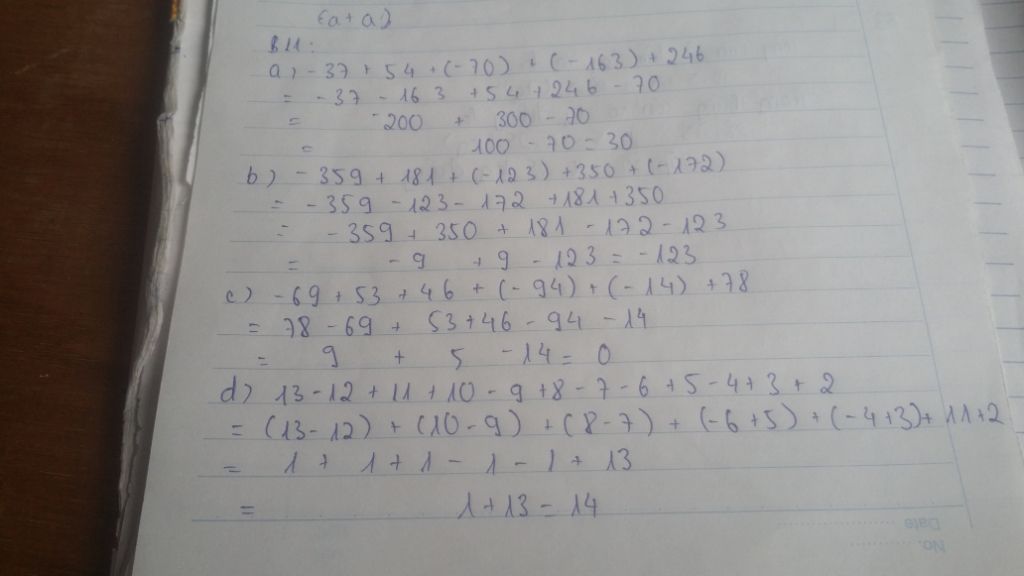 (a+a)
B11:
a) -37 + 54 + (-70) + (-163) + 246
= -37 - 163 + 54 + 246 - 70
= -200 + 300 - 70
= 100 - 70 = 30
b) -359 + 181 + (-123) + 350 + (-172)
= -359 - 123 - 172 + 181 + 350
= -359 + 350 + 181 - 172 - 123
= -9 + 9 - 123 = -123
c) -69 + 53 + 46 + (-94) + (-14) + 78
= 78 - 69 + 53 + 46 - 94 - 14
= 9 + 5 - 14 = 0
d) 13 - 12 + 11 + 10 - 9 + 8 - 7 - 6 + 5 - 4 + 3 + 2
= (13 - 12) + (10 - 9) + (8 - 7) + (-6 + 5) + (-4 + 3) + 11 + 2
= 1 + 1 + 1 - 1 - 1 + 13
= 1 + 13 = 14
Date
No.